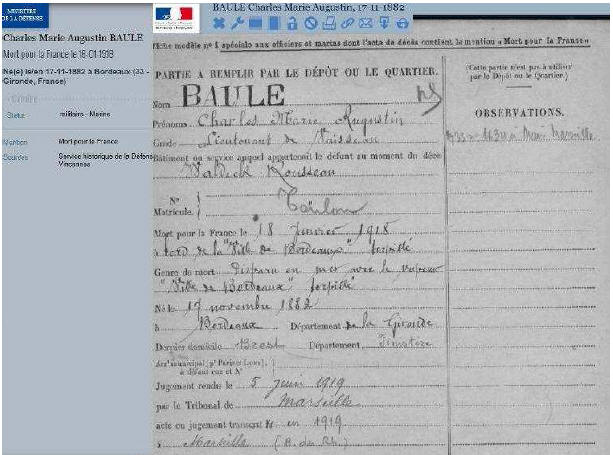 MINISTÈRE
DE LA DÉFENSE
Charles Marie Augustin BAULE
Mort pour la France le 18-01-1918
Né(e) le/en 17-11-1882 à Bordeaux (33 -
Gironde, France)
Statut militaire - Marine
Mention Mort pour la France
Sources Service historique de la Défense
Vincennes
BAULE Charles Marie Augustin, 17-11-1882
Fiche modèle nº 1 spéciale aux officiers et marins dont l'acte de décès contient la mention « Mort pour la France »
PARTIE A REMPLIR PAR LE DÉPÔT OU LE QUARTIER.
Nom BAULE
Prénoms Charles Marie Augustin
Grade Lieutenant de Vaisseau
Bâtiment ou service auquel appartenait le défunt au moment du décès
Waldeck Rousseau
Nº
Matricule. Toulon
Mort pour la France le 18 Janvier 1918
à bord de la "Ville de Bordeaux" torpillé
Genre de mort Disparu en mer avec le vapeur
"Ville de Bordeaux" torpillé
Né le 17 novembre 1882
à Bordeaux Département de la Gironde
Dernier domicile Brest Département, Finistère
à défaut rue et Nº
Jugement rendu le 5 juin 1919
par le Tribunal de Marseille
acte ou jugement transcrit le en 1919
à Marseille (B. du Rh.)
(Cette partie n'est pas à utiliser
par le Dépôt ou le Quartier.)
OBSERVATIONS.